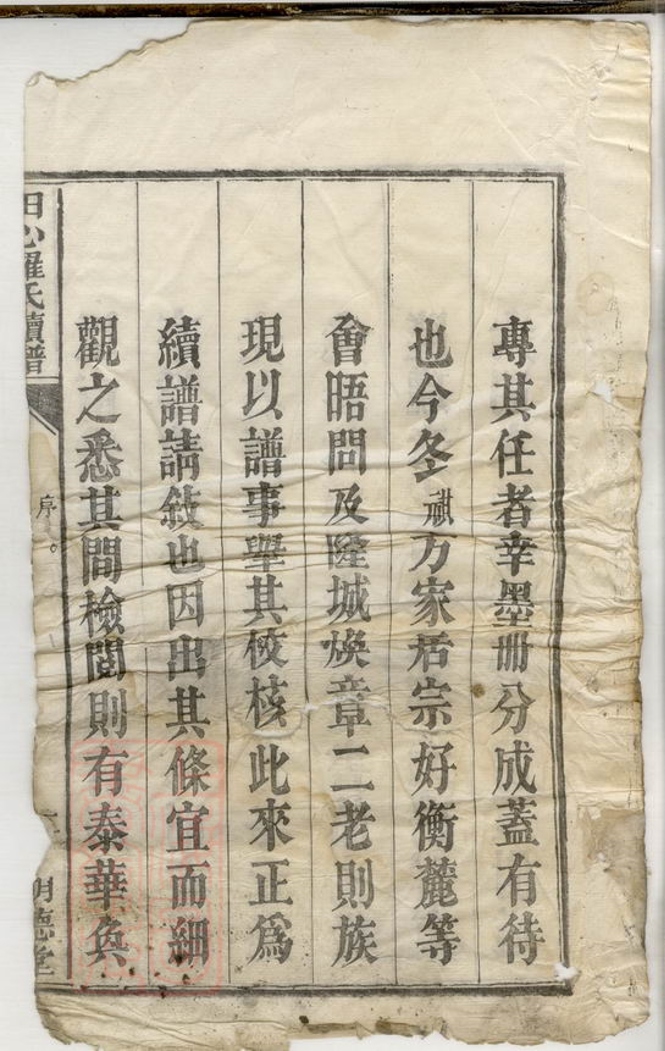 專其任者幸墨冊分成蓋有待
也今冬祺方家君宗好衡麓等
會晤問及隆城煥章二老則族
現以譜事舉其校核此來正爲
續譜請敘也因出其條宜而細
觀之悉其間檢閱則有泰華奐
羅氏續譜
序
明德堂